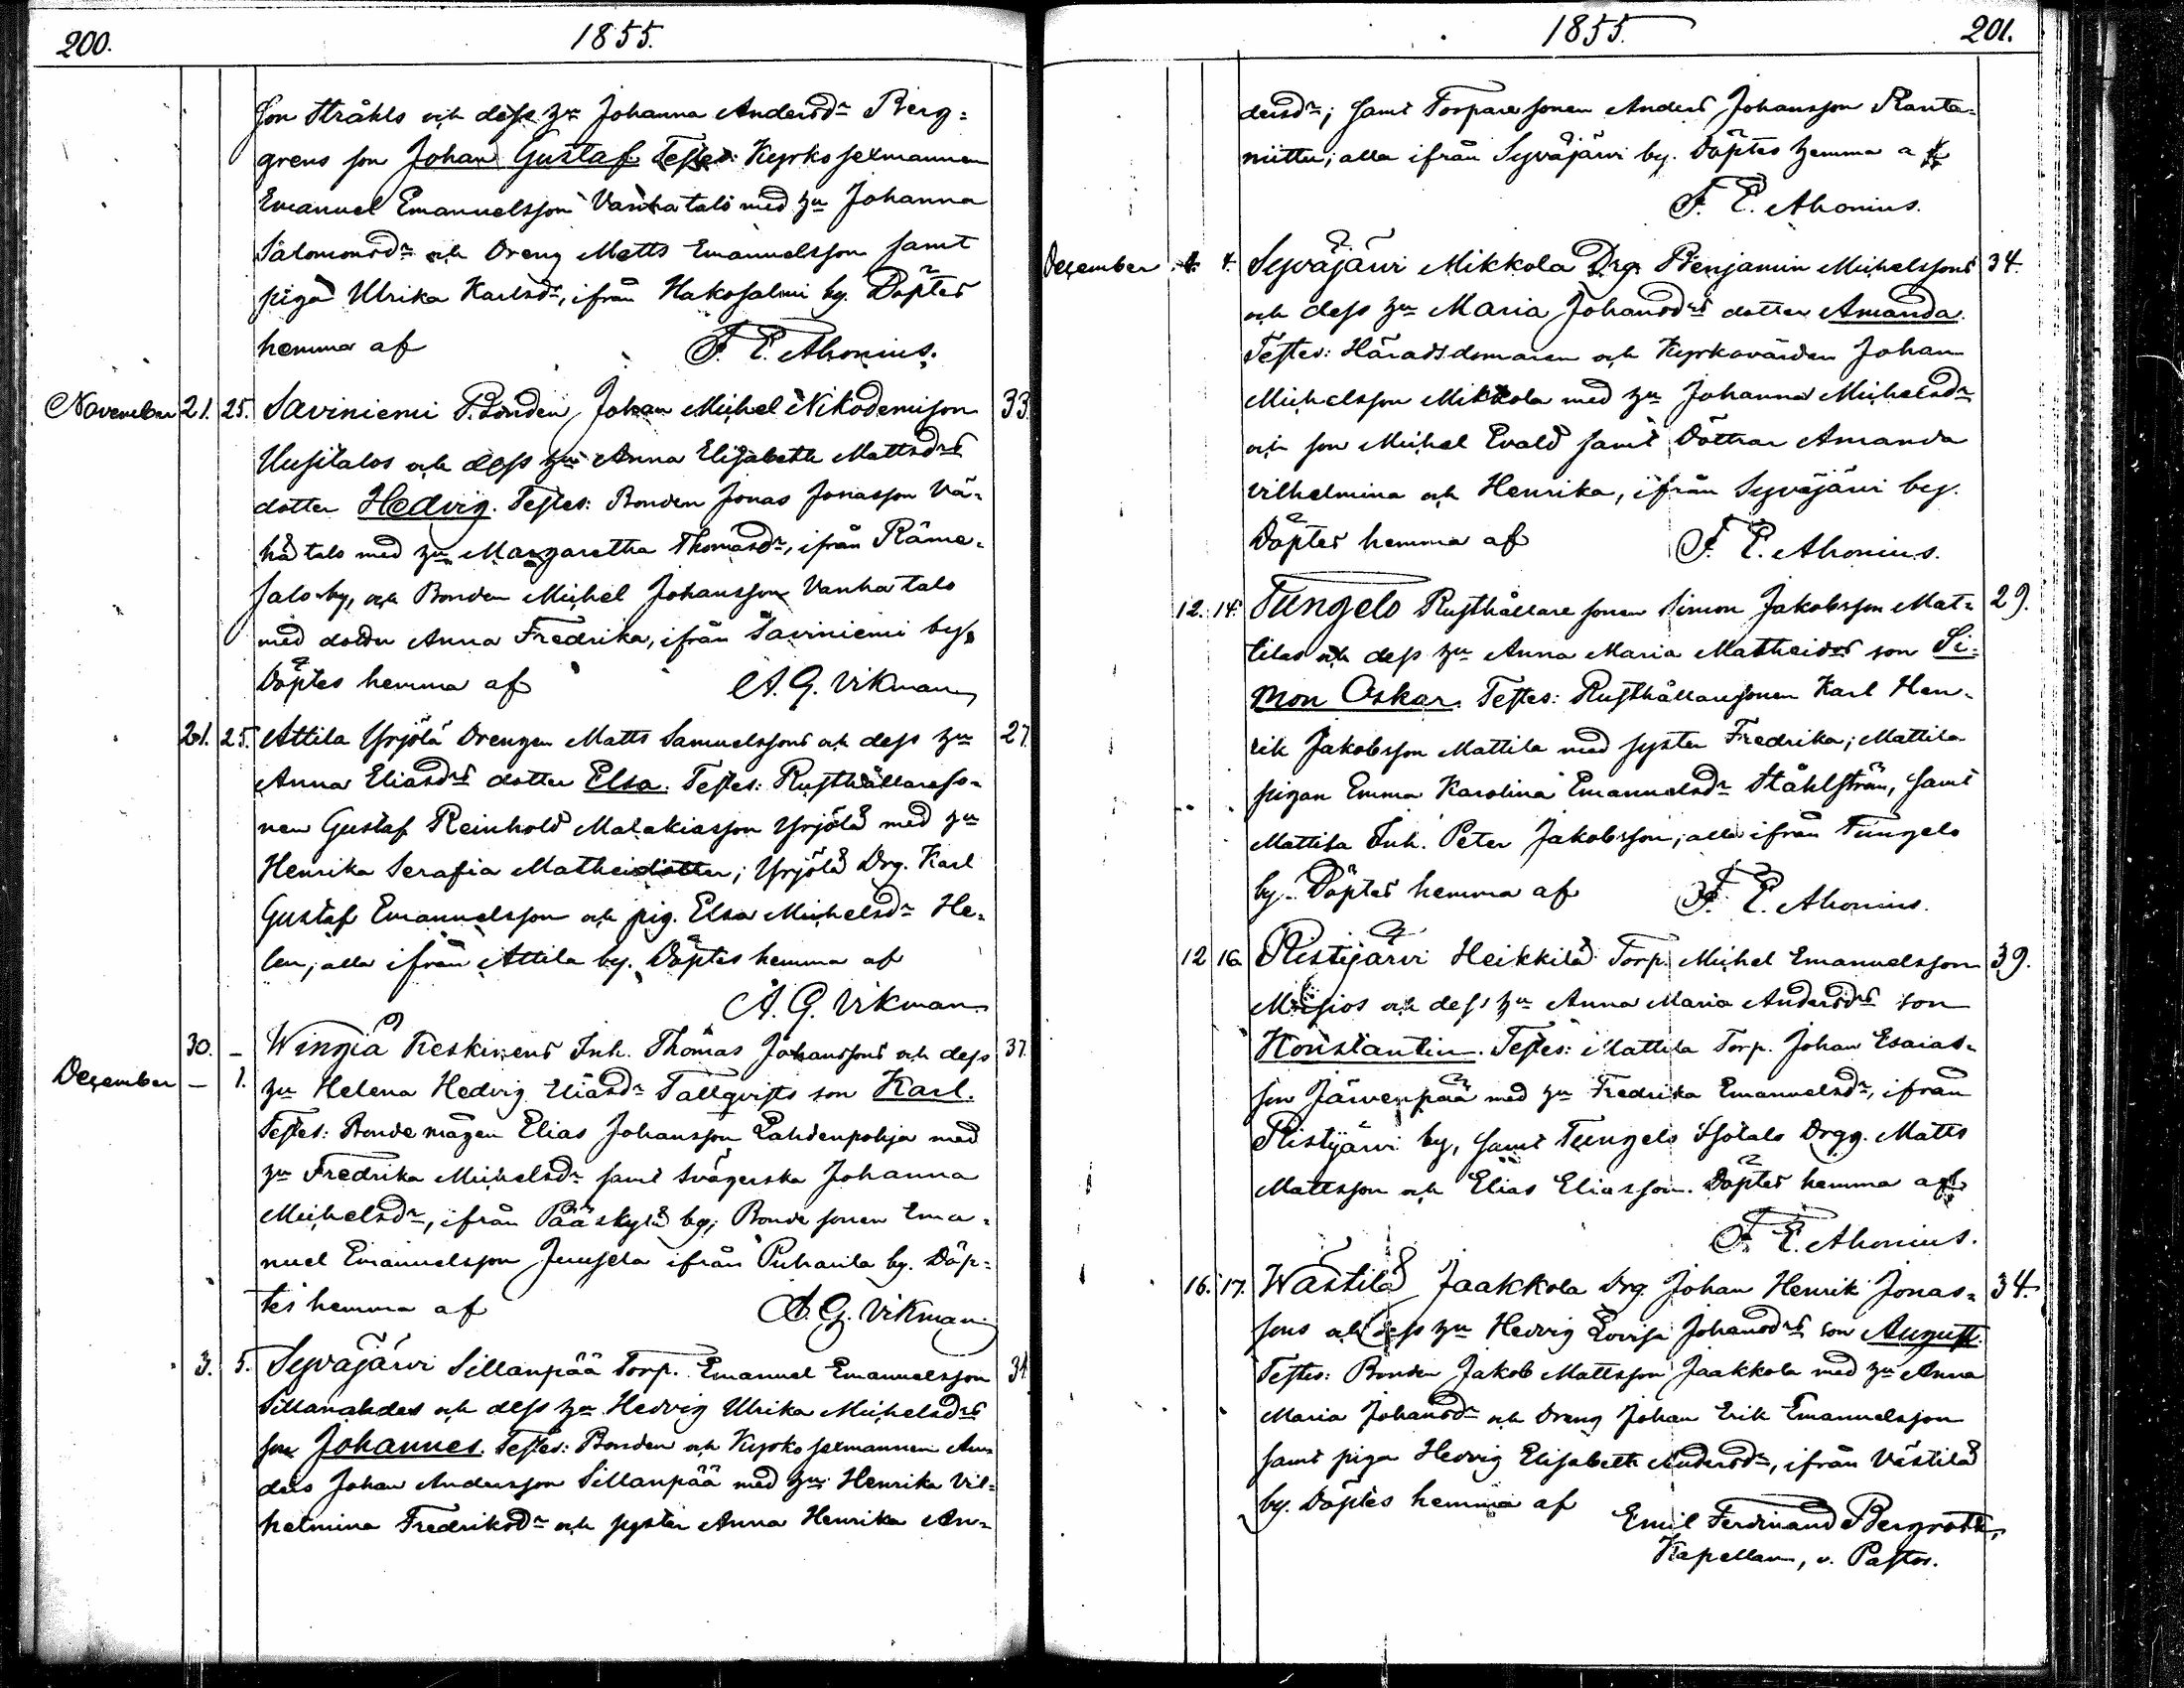 200.
1855.
son Stråhls och dess hu Johanna Andersdr Berg=
grens son Johan Gustaf. Testes: Kyrko sexmannen
Emanuel Emanuelsson Vanhatalo med hu Johanna
Salomonsdr och Dreng Matts Emanuelsson samt
piga Ulrika Karlsdr, ifrån Hakosalmi by. Döptes
hemma af F. E. Ahonius.
November 21. 25. Saviniemi Bonden Johan Michel Nikodemison 33.
Uusitalos och dess hu Anna Elisabeth Mattsdrs
dotter Hedvig. Testes: Bonden Jonas Jonasson Vä=
hä talo med hu Margaretha Thomasdr, ifrån Räme=
salo by, och Bonden Michel Johansson Vanha talo
med dotter Anna Fredrika, ifrån Saviniemi by.
Döptes hemma af A. G. Vikman
21. 25. Attila Yrjölä Drengen Matts Samuelssons och dess hu 27
Anna Eliasdrs dotter Elsa. Testes: Rusthållareso=
nen Gustaf Reinhold Malakiasson Yrjölä med hu
Henrika Serafia Matheidotter; Yrjölä Drg. Karl
Gustaf Emanuelsson och pig. Elsa Michelsdr He=
len, alla ifrån Attila by. Döptes hemma af
A. G. Vikman
30. — Wingiä Keskinens Inh. Thomas Johanssons och dess 37.
December — 1. hu Helena Hedvig Eliasdr Tallqvists son Karl.
Testes: Bonde mågen Elias Johansson Lahdenpohja med
hu Fredrika Michelsdr samt svägerska Johanna
Michelsdr, ifrån Pääskylä by; Bonde sonen Ema=
nuel Emanuelsson Juusela ifrån Puharila by. Döp=
tes hemma af A. G. Vikman
3. 5. Syväjärvi Sillanpää Torp. Emanuel Emanuelsson 34
Sillanahdes och dess hu Hedvig Ulrika Michelsdrs
son Johannes. Testes: Bonden och Kyrko sexmannen An=
ders Johan Andersson Sillanpää med hu Henrika Vil=
helmina Fredriksdr och syster Anna Henrika An=
1855.
201.
dersdr; samt Torpare sonen Anders Johansson Ranta=
niittu; alla ifrån Syväjärvi by. Döptes hemma af
F. E. Ahonius.
December 4. Syväjärvi Mikkola Drg. Benjamin Michelssons 34.
och dess hu Maria Johansdrs dotter Amanda.
Testes: Häradsdomaren och Kyrkovärden Johan
Michelsson Mikkola med hu Johanna Michelsdr
och son Michel Evald samt Döttrar Amanda
Vilhelmina och Henrika, ifrån Syväjärvi by.
Döptes hemma af F. E. Ahonius.
12. 14. Tungelo Rusthållare sonen Simon Jakobsson Mat= 29.
tilas och dess hu Anna Maria Matheidrs son Si=
mon Oskar. Testes: Rusthållaresonen Karl Hen=
rik Jakobsson Mattila med syster Fredrika; Mattila
pigan Emma Karolina Emanuelsdr Ståhlström, samt
Mattila Inh. Peter Jakobsson; alla ifrån Tungelo
by. Döptes hemma af F. E. Ahonius.
12 16. Ristijärvi Heikkilä Torp. Michel Emanuelsson 39.
och dess hu Anna Maria Andersdrs son
Konstantin. Testes: Mattila Torp. Johan Esaias=
son Järvenpää med hu Fredrika Emanuelsdr, ifrån
Ristijärvi by, samt Tungelo Isotalo Drgg. Matts
Mattsson och Elias Eliasson. Döptes hemma af
F. E. Ahonius.
16. 17. Wästilä Jaakkola Drg. Johan Henrik Jonas= 34.
sons och dess hu Hedvig Lovisa Johansdrs son August.
Testes: Bonden Jakob Mattsson Jaakkola med hu Anna
Maria Johansdr och Dreng Johan Erik Emanuelsson
samt piga Hedvig Elisabeth Andersdr, ifrån Västilä
by. Döptes hemma af Emil Ferdinand Bergroth,
Kapellan, v. Pastor.